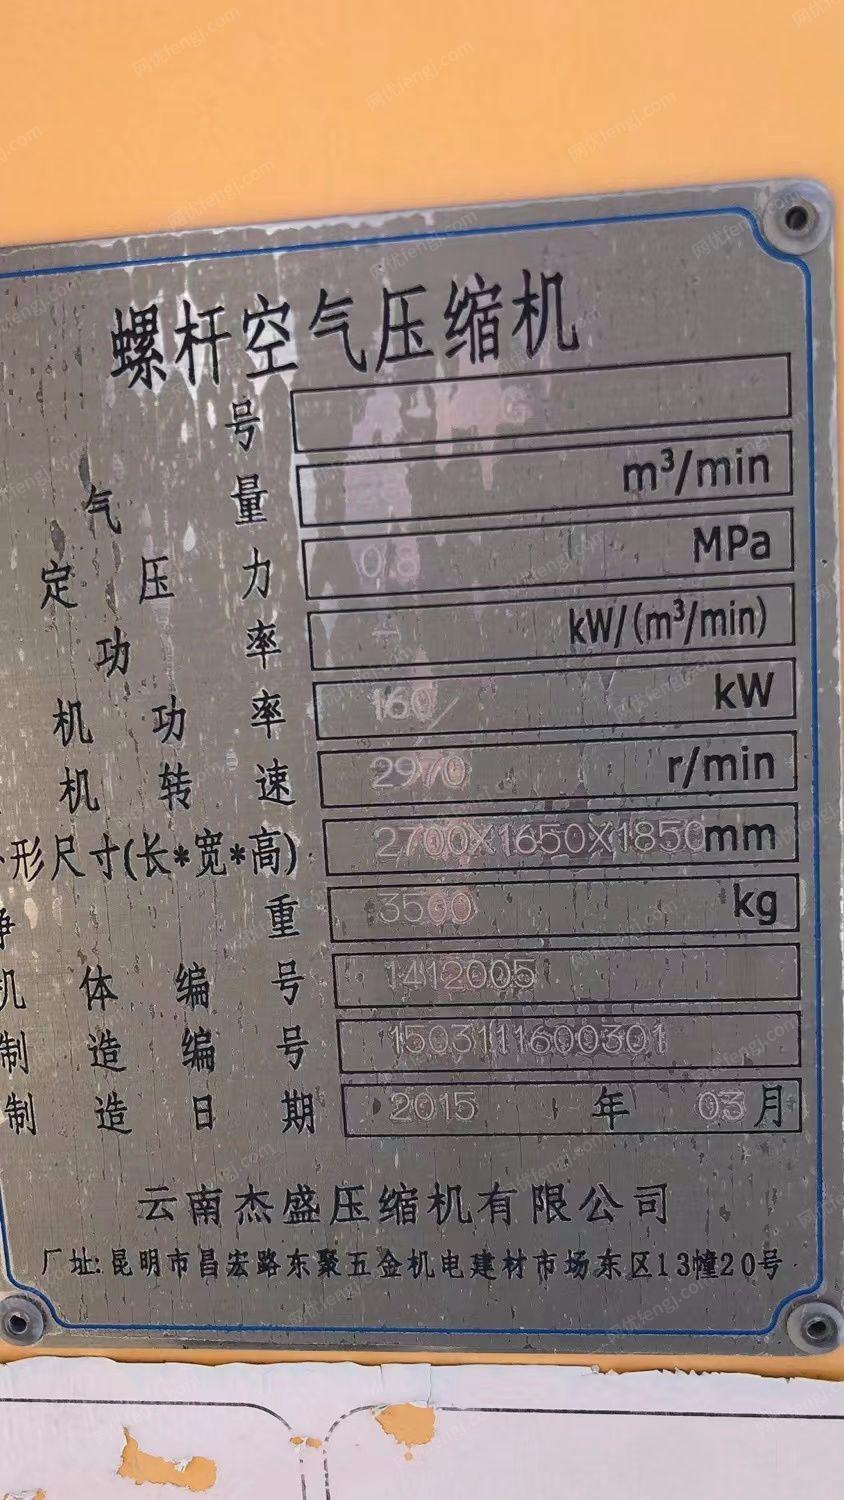 螺杆空气压缩机
号 G
气 量 m³/min
定 压 力 0.8 MPa
功 率 — kW/(m³/min)
机 功 率 160 kW
机 转 速 2970 r/min
形尺寸(长*宽*高) 2700X1650X1850mm
净 重 3500 kg
机 体 编 号 1412005
制 造 编 号 1503111600301
制 造 日 期 2015 年 03月
云南杰盛压缩机有限公司
厂址:昆明市昌宏路东聚五金机电建材市场东区13幢20号